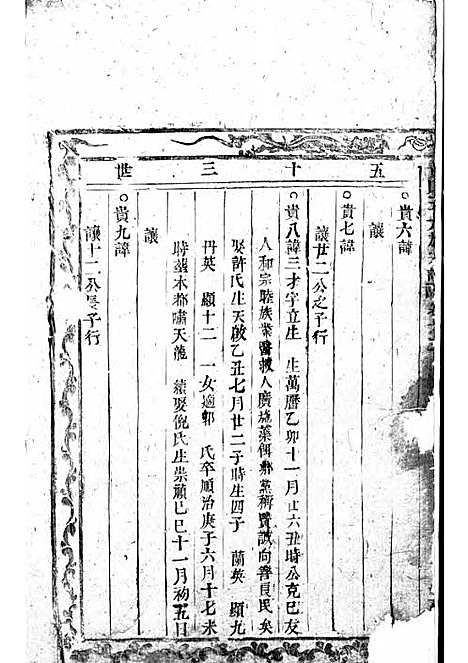 五十三世
貴六諱
讓
貴七諱
讓廿二公之子行
貴八諱三才字立生 生萬曆乙卯十一月廿六丑時公克己友
人和宗睦族業醫救人廣施藥餌鄰黨稱賢誠向善良民矣
娶許氏生天啟乙丑七月廿二子時生四子 蘭英 顯九
丹英 顯十二 一女適郭 氏卒順治庚子六月十七未
時墓木柳嘯天龍 續娶倪氏生崇禎己巳十一月初五日
讓
貴九諱
讓十二公長子行